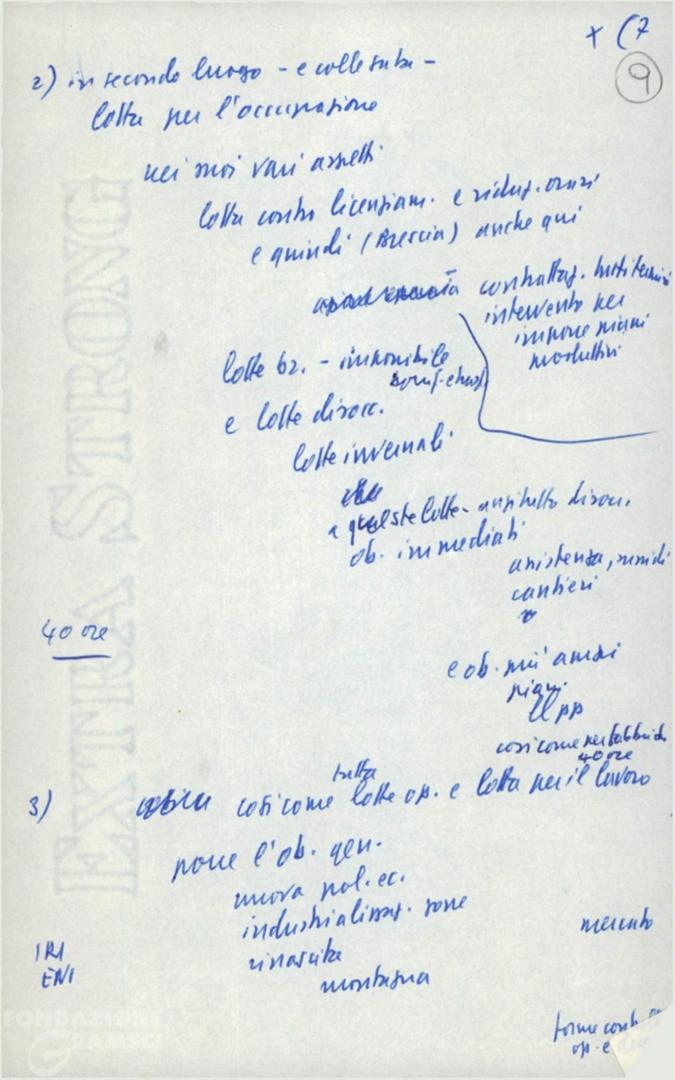 + (7
9
2) in secondo luogo - e collegata -
lotta per l'occupazione
nei suoi vari aspetti
lotta contro licenziam. e riduz. orari
e quindi (Brescia) anche qui
contrattaz.
intervento per
imporre piani
produttivi
lotte br. - imponibile
e lotte disocc.
lotte invernali
a queste lotte - anzitutto disocc.
ob. immediati
assistenza, sussidi
cantieri
40 ore
e ob. più ampi
piani
ll pp
così come per fabbriche
40 ore
tutta
3) così come lotte op. e lotta per il lavoro
pone l'ob. gen.
nuova pol. ec.
industrializzaz. zone
rinascita
montagna
mercato
IRI
ENI
forme cont
op. e
EXTRA STRONG
FONDAZIONE
GRAMSCI